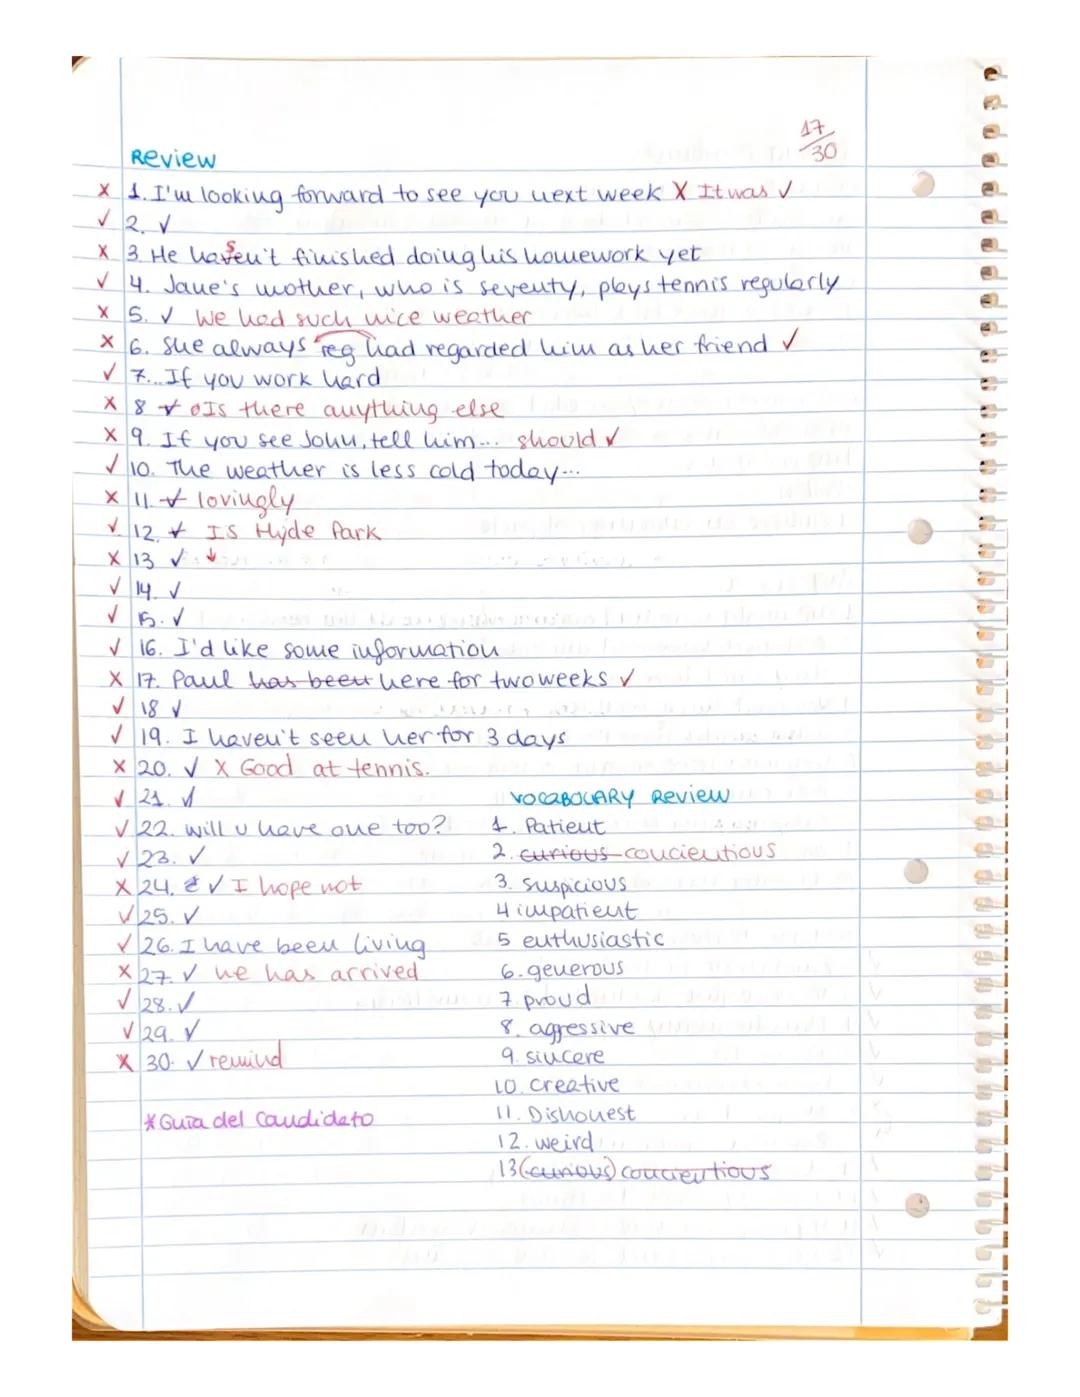 17/30
Review
X 1. I'm looking forward to see you next week X It was ✓
✓ 2. ✓
X 3. He hasven't finished doing his homework yet
✓ 4. Jane's mother, who is seventy, plays tennis regularly
X 5. ✓ We had such nice weather
X 6. She always reg had regarded him as her friend ✓
✓ 7... If you work hard
X 8 ✓ Is there anything else
X 9. If you see John, tell him... should ✓
✓ 10. The weather is less cold today...
X 11. ✓ lovingly
✓ 12. ✓ Is Hyde Park
X 13 ✓ ↓
✓ 14. ✓
✓ 15. ✓
✓ 16. I'd like some information
X 17. Paul has been here for two weeks ✓
✓ 18 ✓
✓ 19. I haven't seen her for 3 days
X 20. ✓ X Good at tennis.
✓ 21. ✓
✓ 22. will u have one too?
✓ 23. ✓
X 24. ✓ I hope not
✓ 25. ✓
✓ 26. I have been living
X 27. ✓ he has arrived
✓ 28. ✓
✓ 29. ✓
X 30. ✓ remind
*Guía del Candidato
VOCABOLARY Review
1. Patient
2. curious concientious
3. Suspicious
4 impatient
5 enthusiastic
6. generous
7. proud
8. aggressive
9. sincere
10. Creative
11. Dishonest
12. weird
13 (curious) concientious